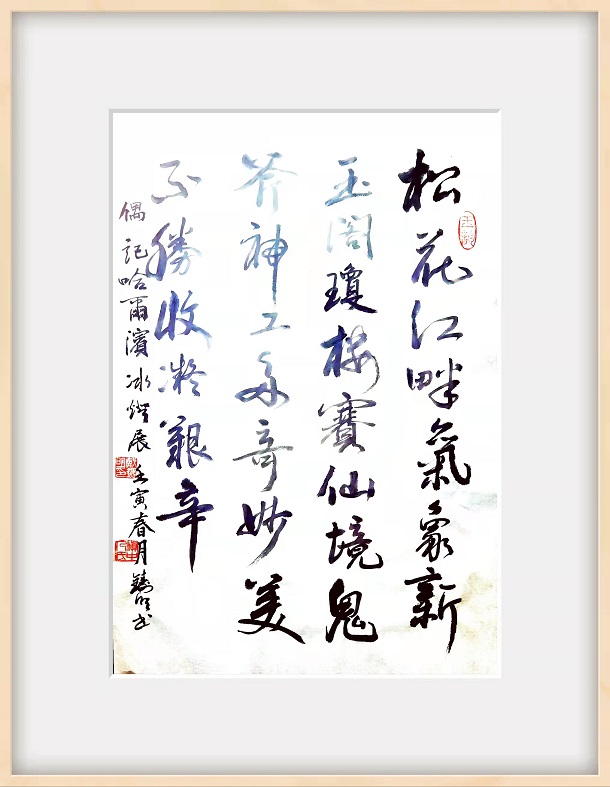 松花江畔氣象新
玉阁瓊楼賽仙境鬼
斧神工多奇妙美
不勝收凝艱辛
偶記哈爾濱冰燈展壬寅春月